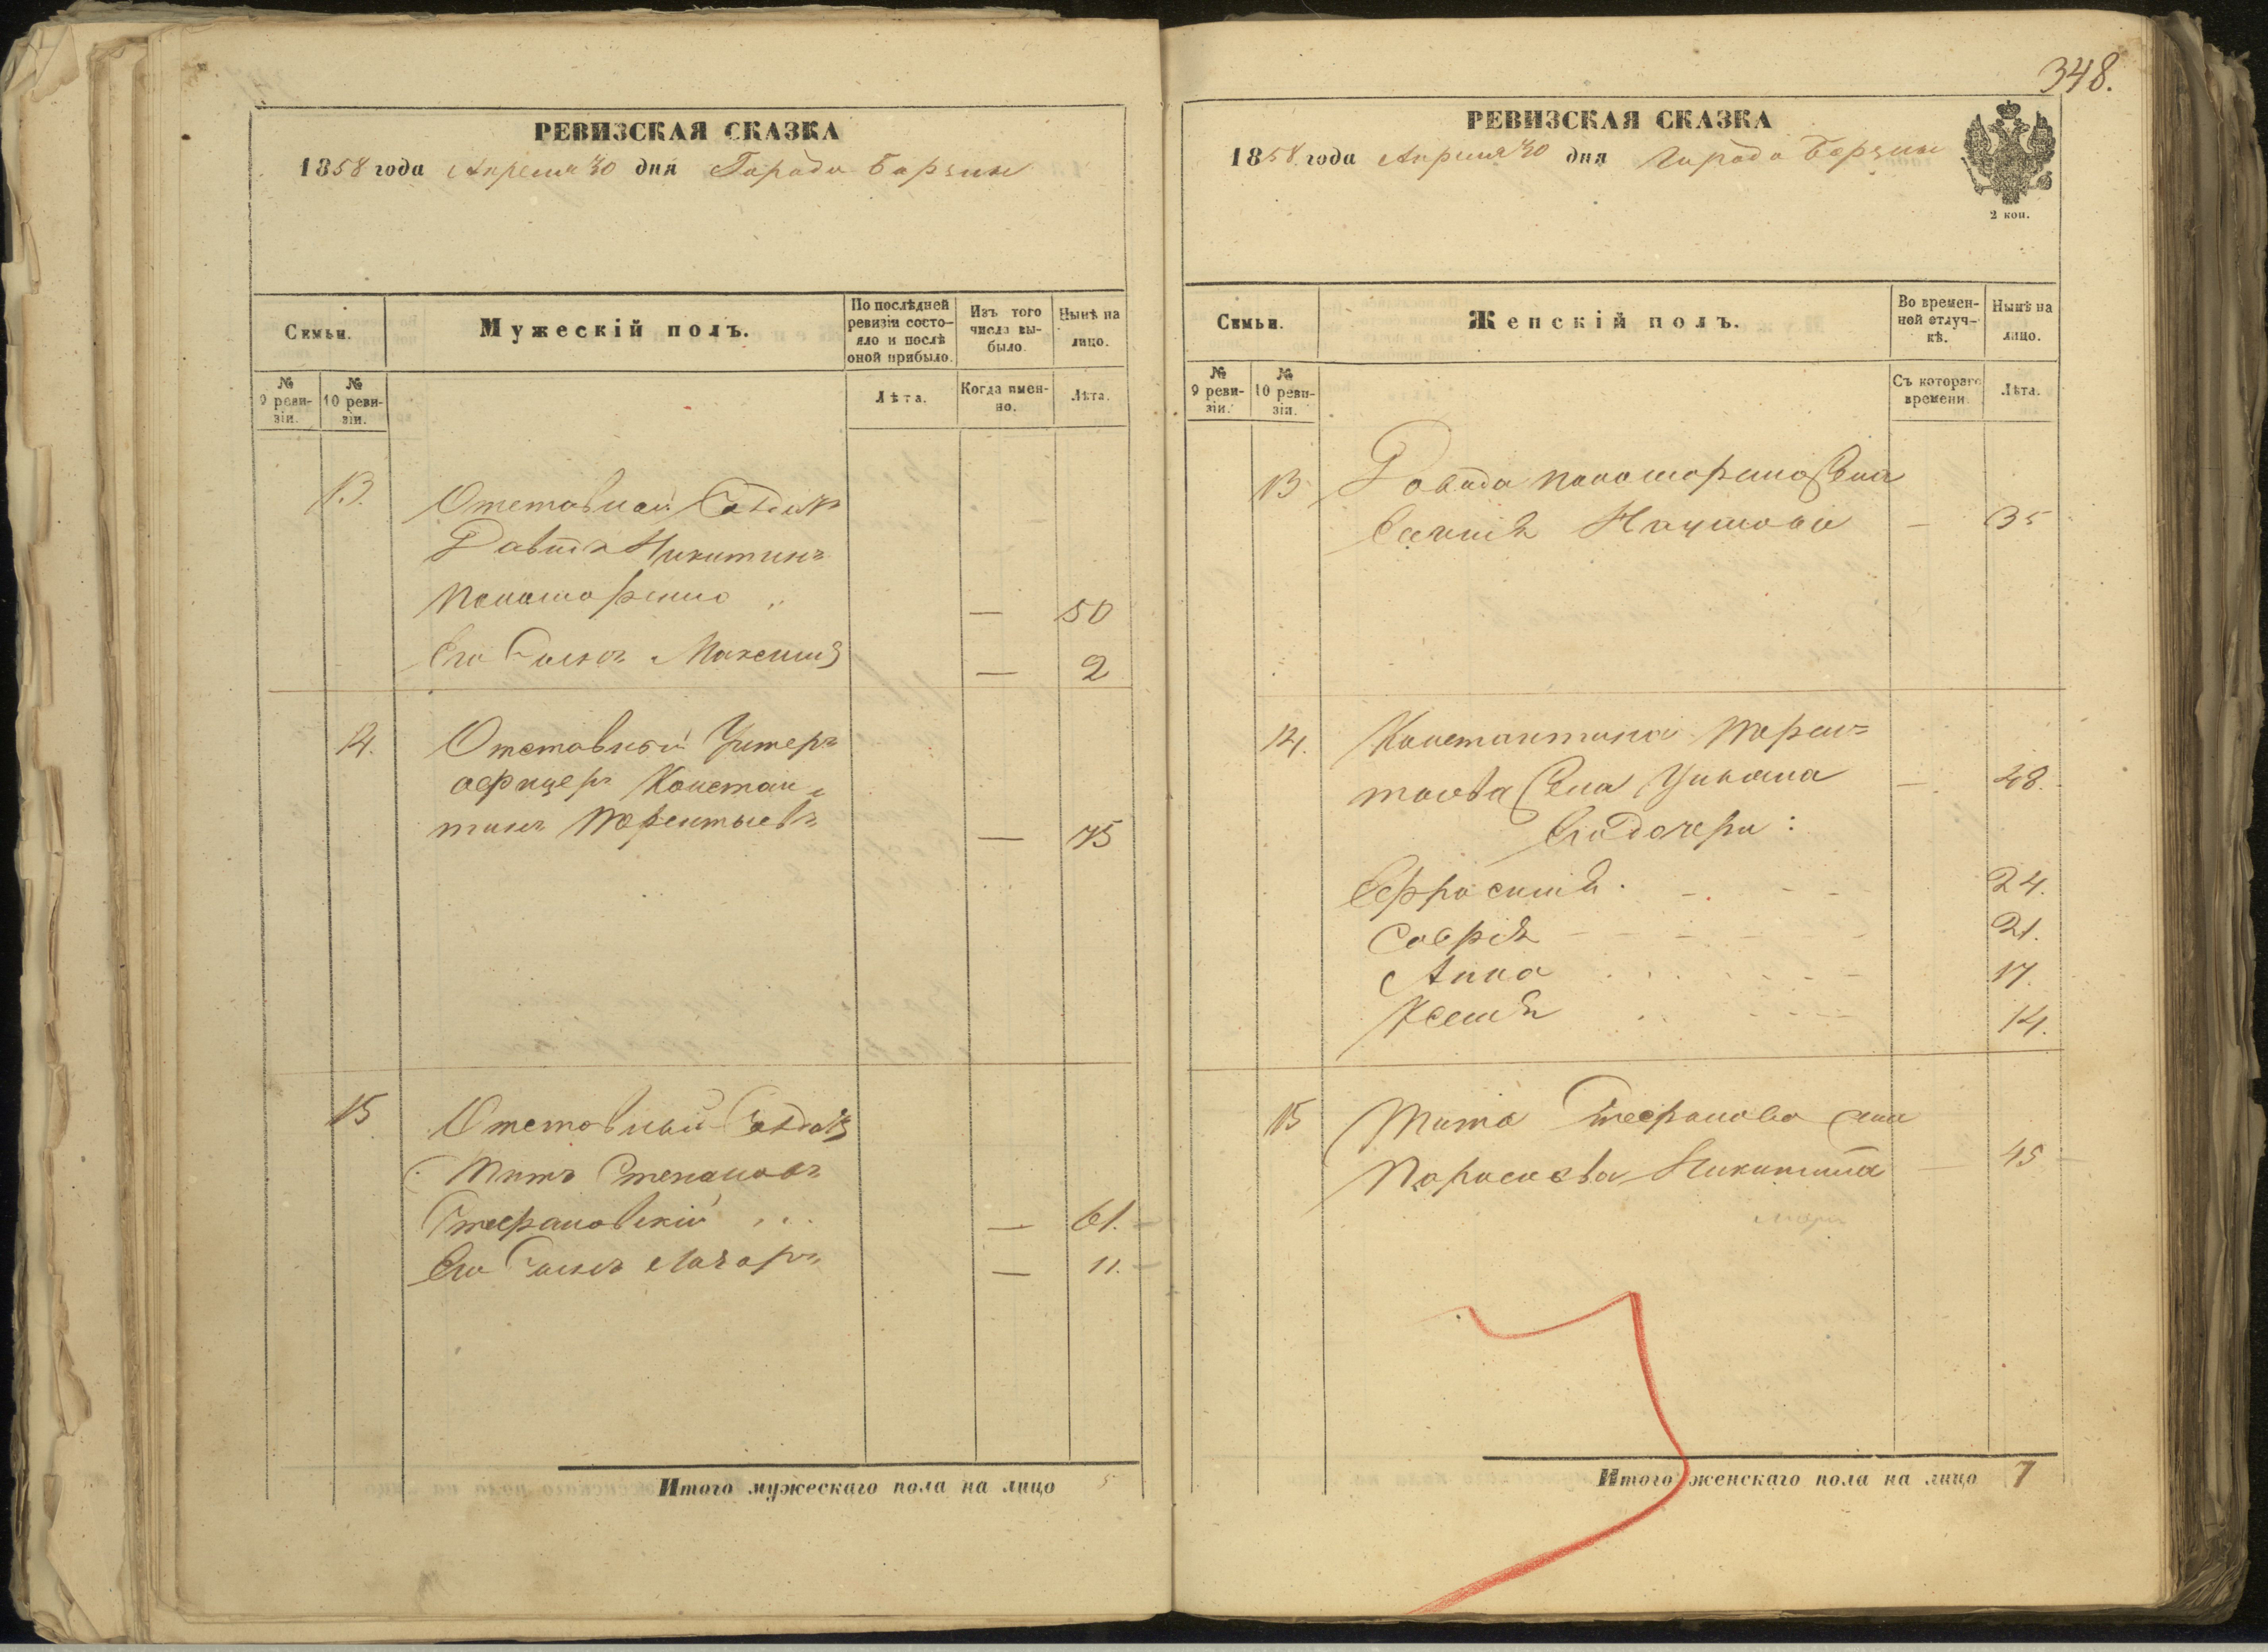 РЕВИЗСКАЯ СКАЗКА
1858 года Апреля 30 дня Города Борзны
Семьи.
Мужескій полъ.
По послѣдней
ревизіи состо-
яло и послѣ
оной прибыло.
Изъ того
числа вы-
было.
Нынѣ на
лицо.
№
9 реви-
зіи.
№
10 реви-
зіи.
Лѣта.
Когда имен-
но.
Лѣта.
13. Отставной Солдатъ
Давидъ Никитинъ
— 50
Его Сынъ Максимъ — 2
14. Отставный Унтеръ
офицеръ Констан-
тинъ Терентьевъ — 75
15 Отставный Солдатъ
Титъ Степановъ
Стефановскій — 61.
Его Сынъ Лазарь — 11.
Итого мужескаго пола на лицо 5
348.
РЕВИЗСКАЯ СКАЗКА
1858 года Апреля 30 дня Города Борзны
2 коп.
Семьи.
Женскій полъ.
Во времен-
ной отлуч-
кѣ.
Нынѣ на
лицо.
№
9 реви-
зіи.
№
10 реви-
зіи.
Съ котораго
времени
Лѣта.
13 Давида жена
— 35
14. Константина Терен-
жена Ульяна — 48.
Его дочери:
Ефросинія 24.
Софія 21.
Анна 17.
Ксенія 14.
15 Тита Стефанова жена
Параскева Никитина — 45
Итого женскаго пола на лицо 7